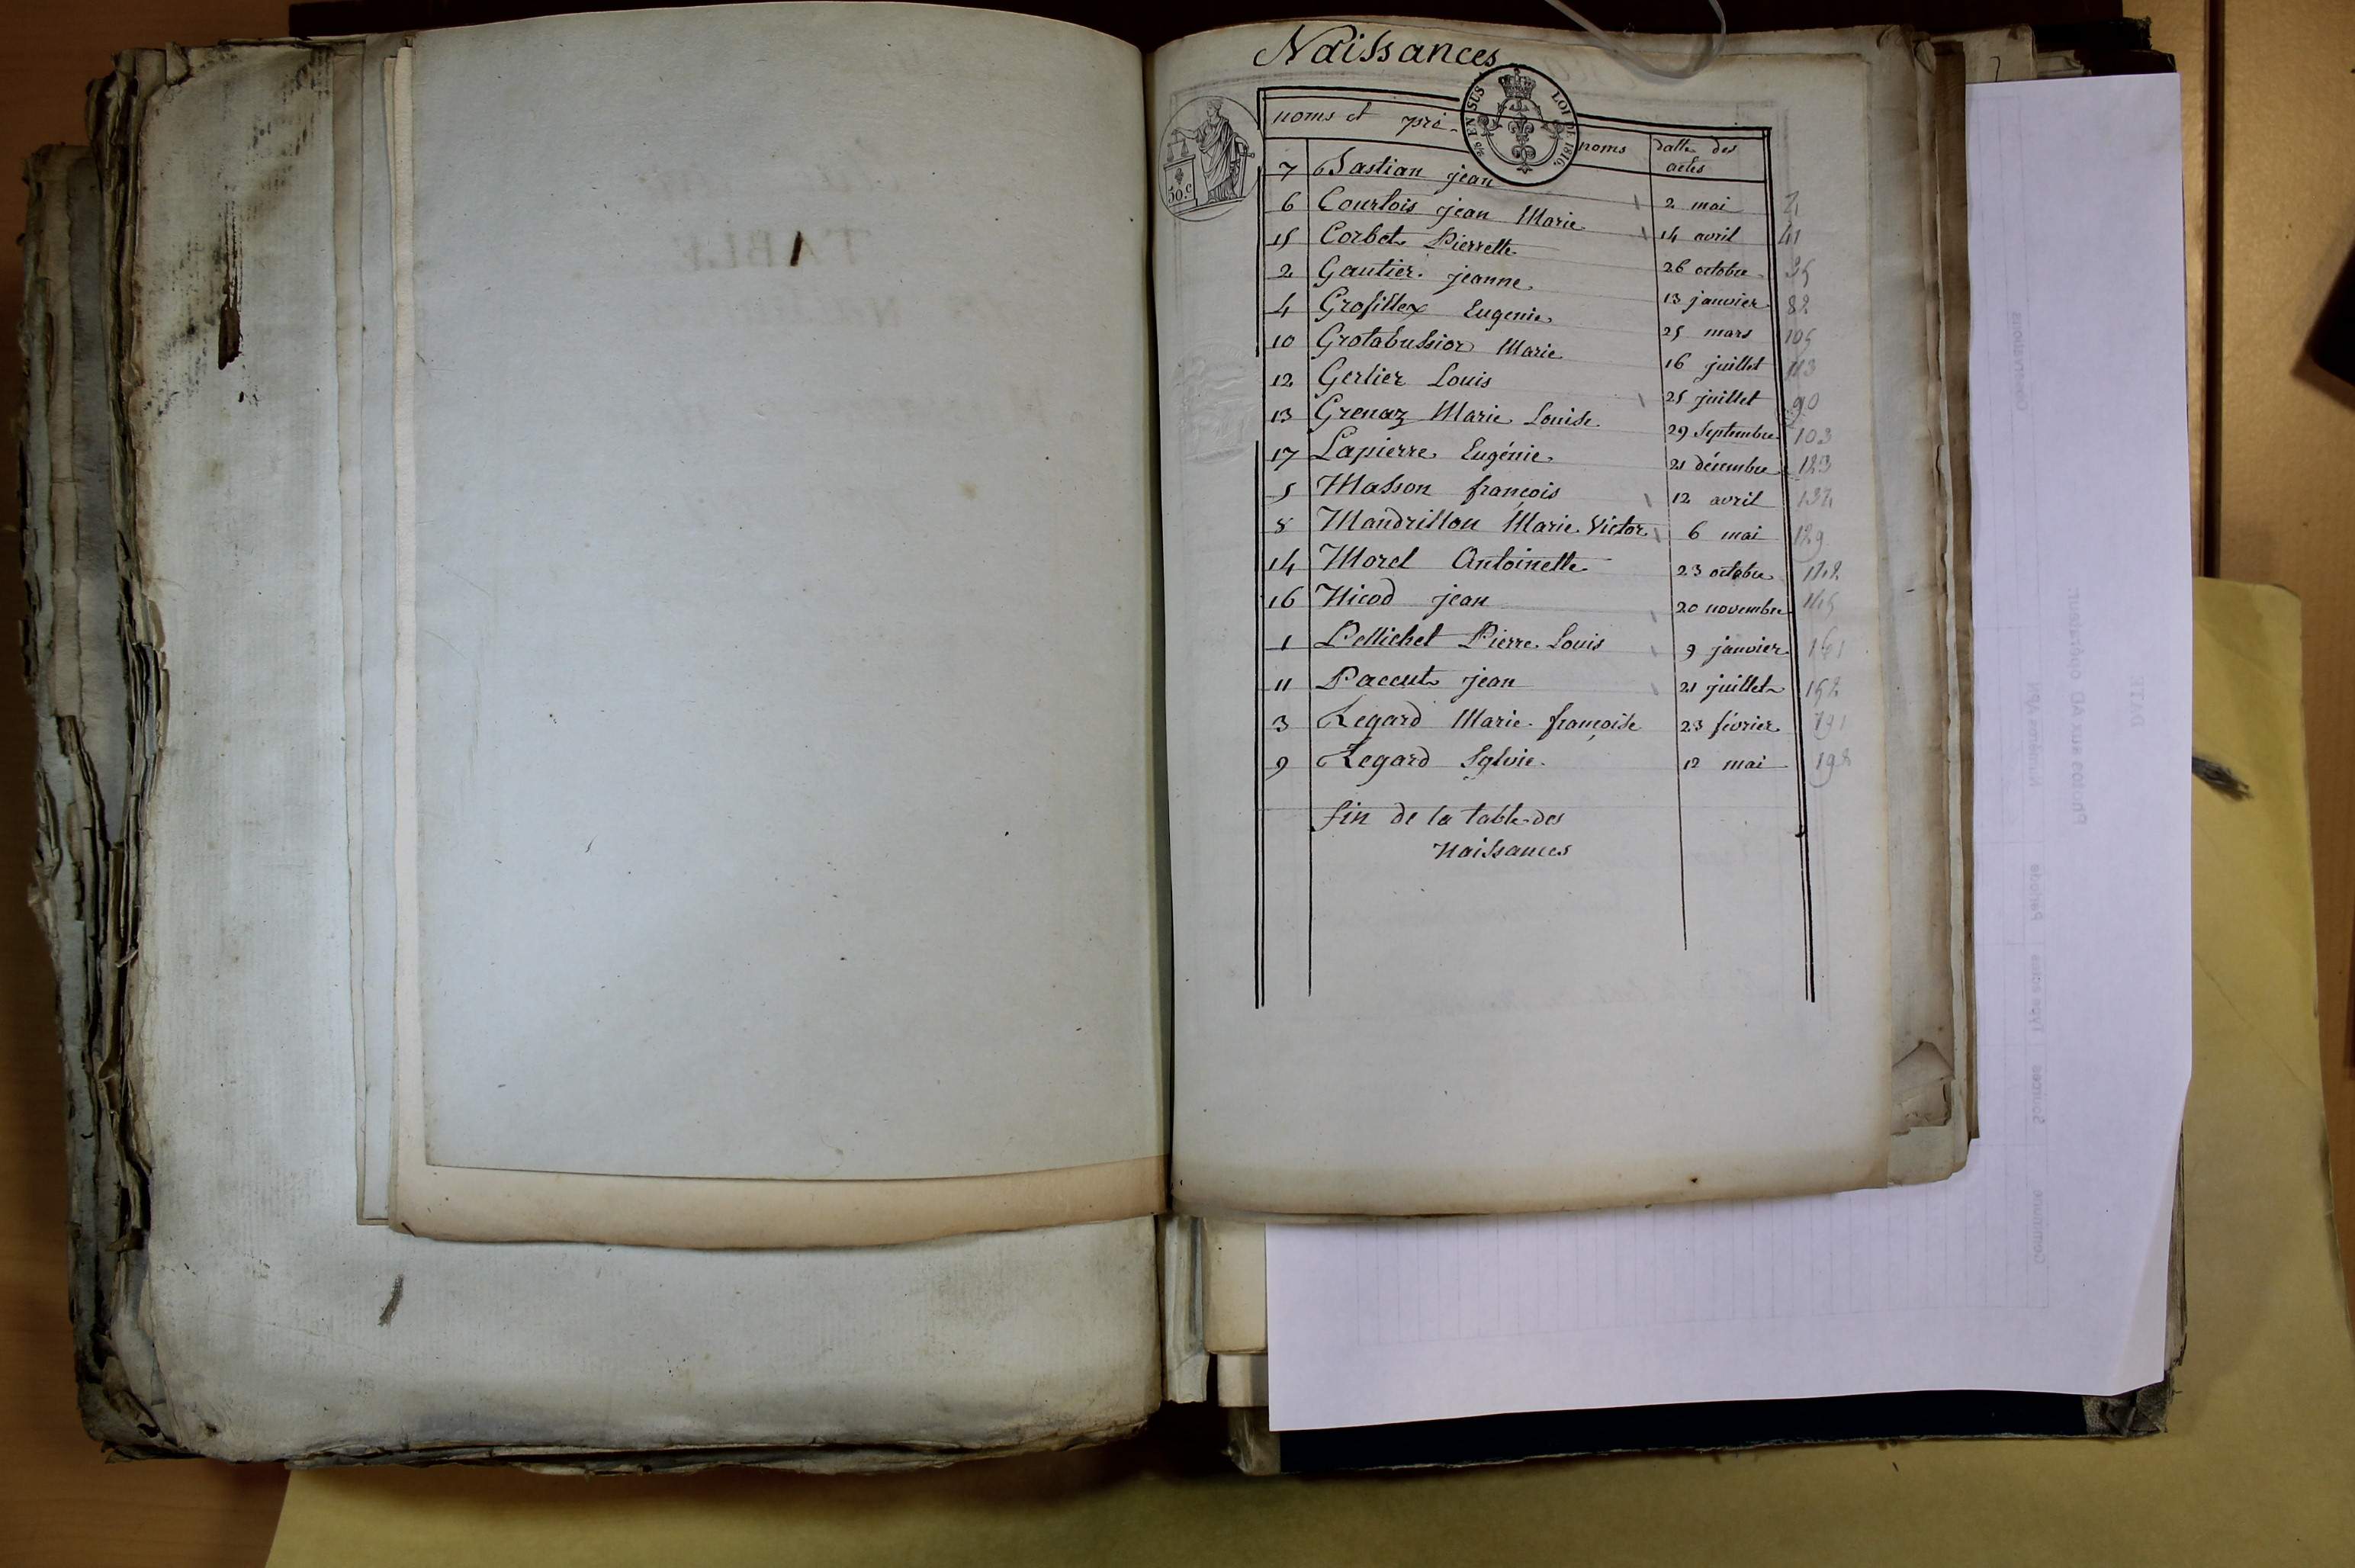 Naissances
EN SUS LOI DE 1816.
50.c
noms et pré- noms datte des actes
7 Bastian jean 2 mai
6 Courtois jean Marie 14 avril 41
15 Corbet Pierrette 26 octobre 35
2 Gautier jeanne 13 janvier 82
4 Grosfillex Eugenie 25 mars 105
10 Marie 16 juillet 113
12 Gerlier Louis 25 juillet 90
13 Grenaz Marie Louise 29 Septembre 103
17 Lapierre Eugénie 21 décembre 123
5 Masson françois 12 avril
8 Mandrillon Marie Victor 6 mai 129
14 Morel Antoinette 23 octobre
16 Nicod jean 20 novembre
1 Pellichet Pierre Louis 9 janvier 161
11 Paccut jean 21 juillet 152
3 Regard Marie françoise 23 février 191
9 Regard Sylvie 12 mai
fin de la table des
Naissances
TABLE
Commune Sources Type actes Période
Photos aux AD
DATE